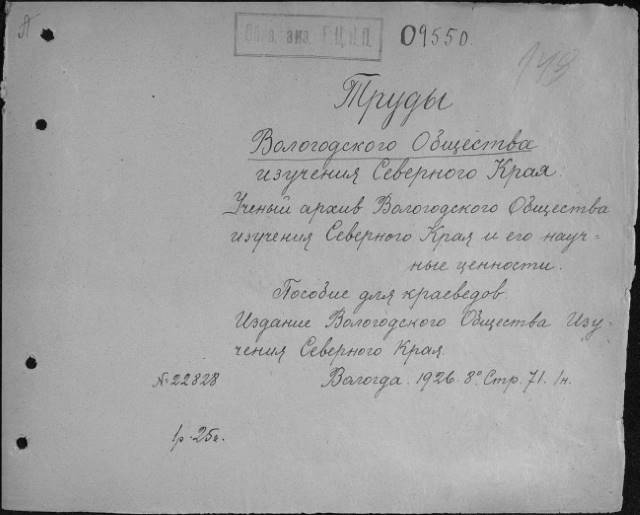 Обяз. экз. Г.Ц.К.П. 09550
143
Труды
Вологодского Общества
изучения Северного Края.
Ученый архив Вологодского Общества
изучения Северного Края и его науч-
ные ценности.
Пособие для краеведов.
Издание Вологодского Общества Изу-
чения Северного Края.
№ 22828 Вологда. 1926. 8° Стр. 71. 1н.
1р. 25к.